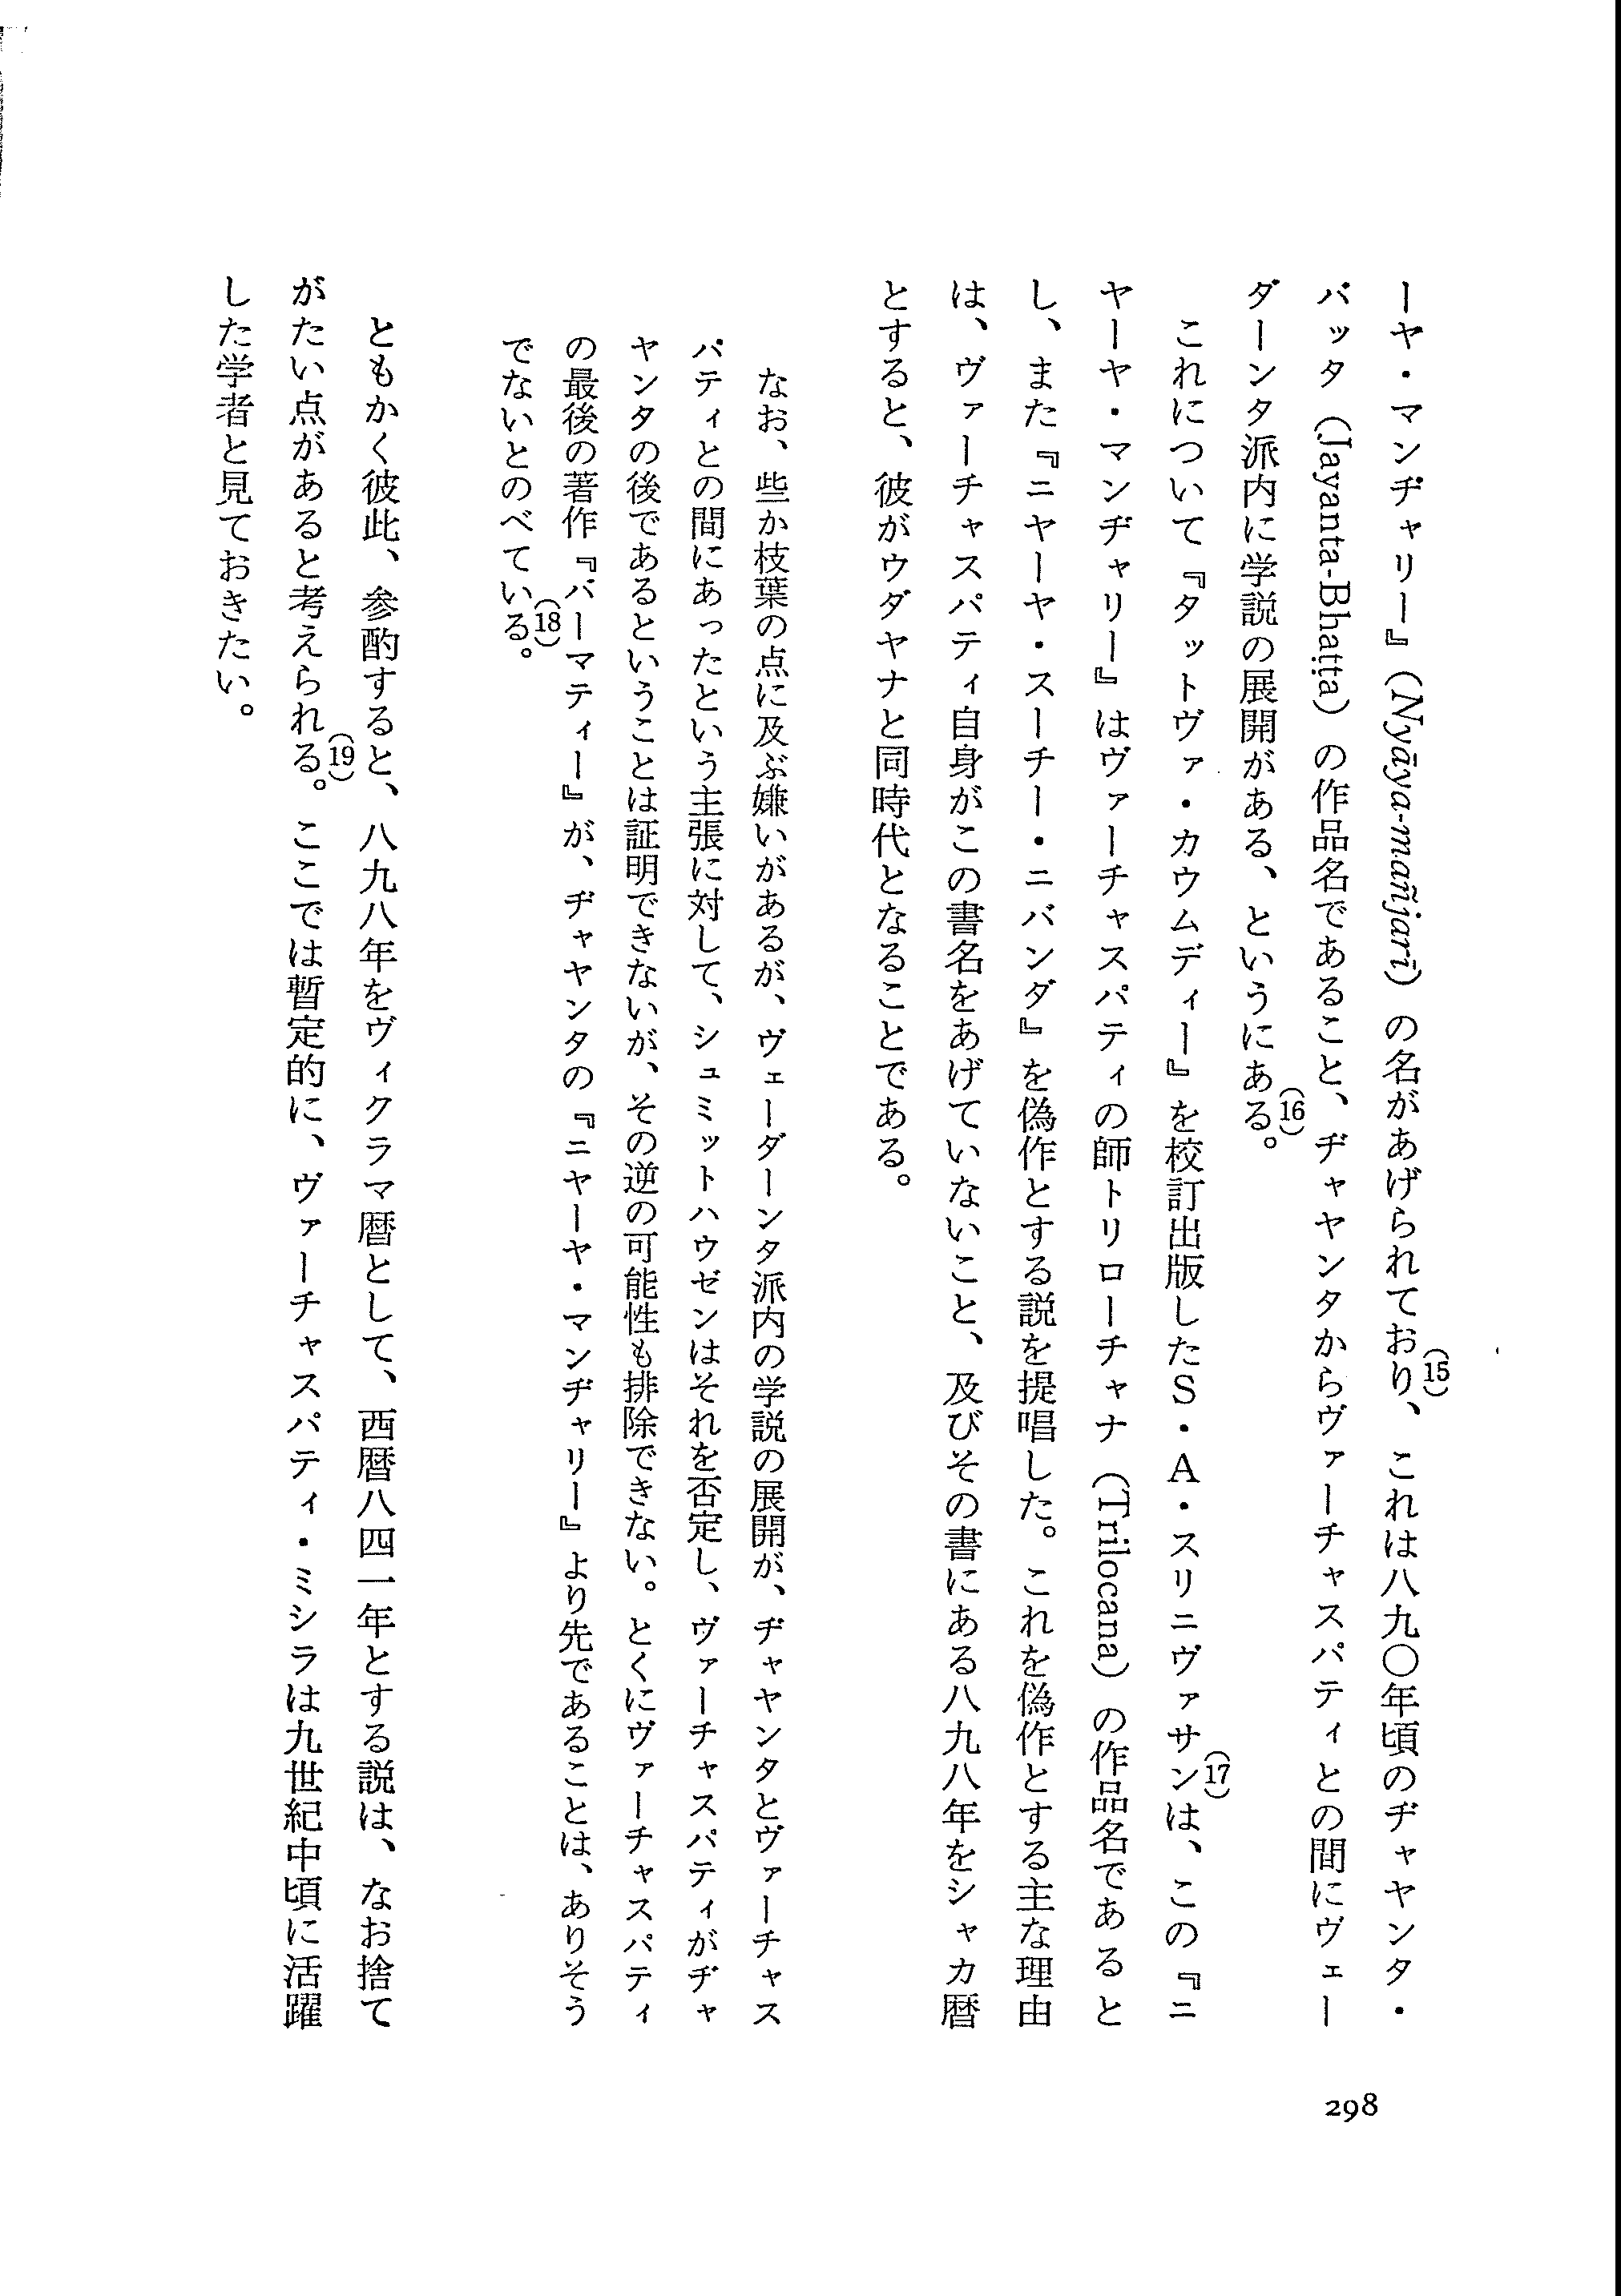 ーヤ・マンヂャリー』(Nyāya-mañjarī) の名があげられており⒂、これは八九〇年頃のヂャヤンタ・
バッタ (Jayanta-Bhaṭṭa) の作品名であること、ヂャヤンタからヴァーチャスパティとの間にヴェー
ダーンタ派内に学説の展開がある、というにある⒃。
これについて『タットヴァ・カウムディー』を校訂出版したS・A・スリニヴァサン⒄は、この『ニ
ヤーヤ・マンヂャリー』はヴァーチャスパティの師トリローチャナ (Trilocana) の作品名であると
し、また『ニヤーヤ・スーチー・ニバンダ』を偽作とする説を提唱した。これを偽作とする主な理由
は、ヴァーチャスパティ自身がこの書名をあげていないこと、及びその書にある八九八年をシャカ暦
とすると、彼がウダヤナと同時代となることである。
なお、些か枝葉の点に及ぶ嫌いがあるが、ヴェーダーンタ派内の学説の展開が、ヂャヤンタとヴァーチャス
パティとの間にあったという主張に対して、シュミットハウゼンはそれを否定し、ヴァーチャスパティがヂャ
ヤンタの後であるということは証明できないが、その逆の可能性も排除できない。とくにヴァーチャスパティ
の最後の著作『バーマティー』が、ヂャヤンタの『ニヤーヤ・マンヂャリー』より先であることは、ありそう
でないとのべている⒅。
ともかく彼此、参酌すると、八九八年をヴィクラマ暦として、西暦八四一年とする説は、なお捨て
がたい点があると考えられる⒆。ここでは暫定的に、ヴァーチャスパティ・ミシラは九世紀中頃に活躍
した学者と見ておきたい。
298